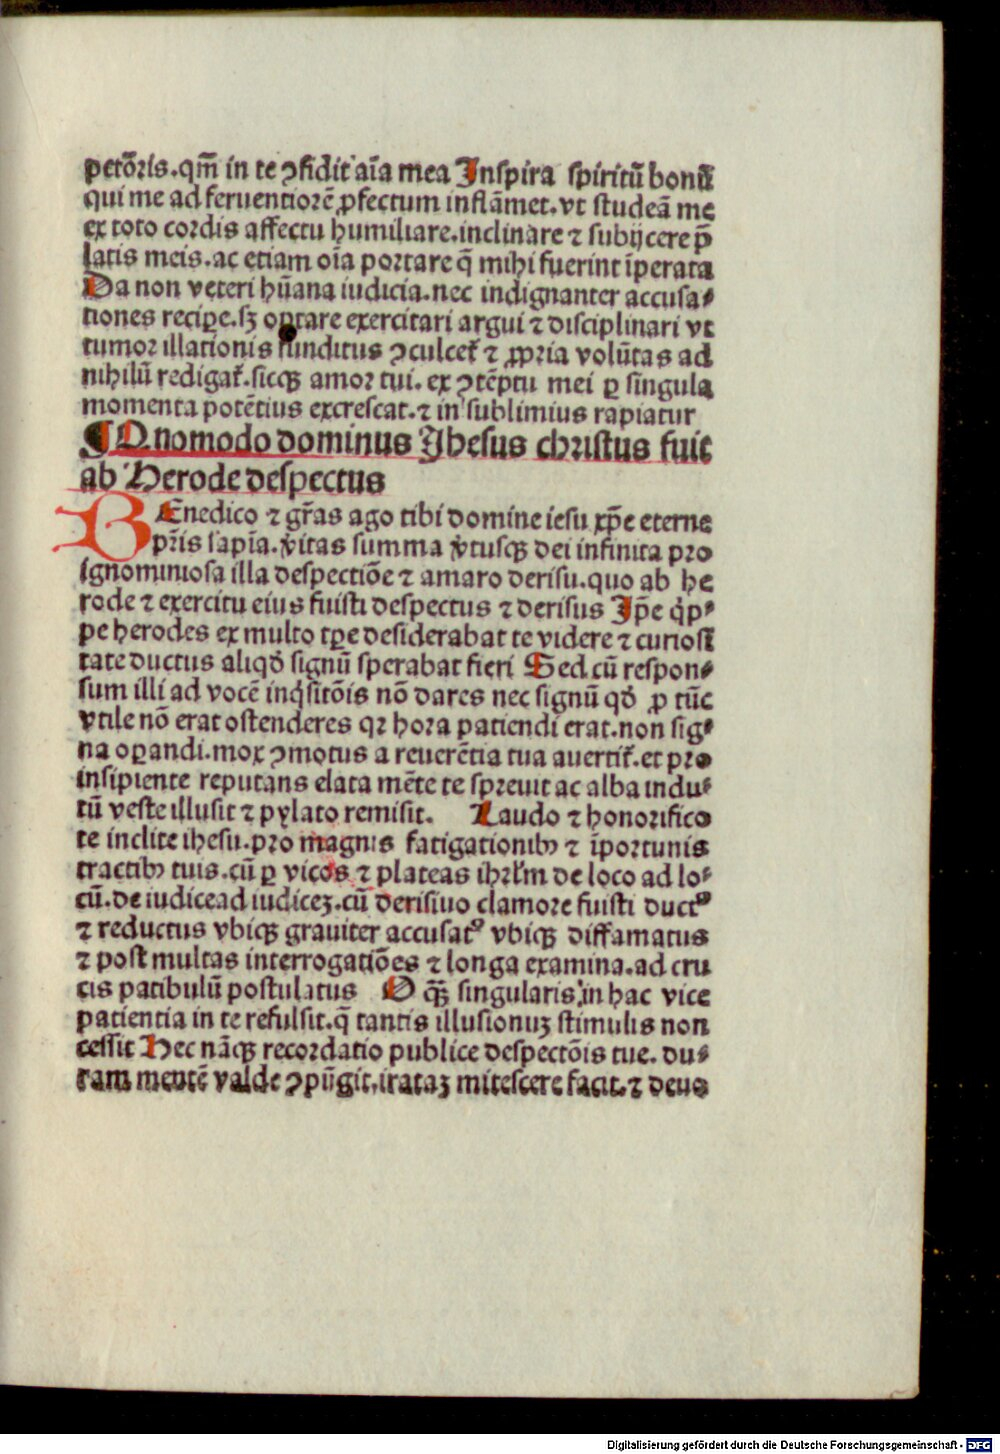 petōris.qm̄ in te ꝯfidit aīa mea Inspira spiritū bonū
qui me ad feruentiorē ꝓfectum inflāmet.vt studeā me
ex toto cordis affectu humiliare.inclinare ⁊ subijcere p̄
latis meis.ac etiam oīa portare q̄ mihi fuerint īperata
Da non vereri hūana iudicia.nec indignanter accusa⸗
tiones recipe.sꝫ optare exercitari argui ⁊ disciplinari vt
tumor illationis funditus ꝯculcet᷑ ⁊ ꝓpria volūtas ad
nihilū redigat᷑.sicqꝫ amor tui. ex ꝯtēptu mei ꝑ singula
momenta potētius excrescat.⁊ in sublimius rapiatur
¶ Quomodo dominus Jhesus christus fuit
ab Herode despectus
BEnedico ⁊ gr̄as ago tibi domine iesu xp̄e eterne
pr̄is sapīa. v̄itas summa v̄tusqꝫ dei infinita pro
ignominiosa illa despectiōe ⁊ amaro derisu.quo ab he
rode ⁊ exercitu eius fuisti despectus ⁊ derisus Ip̄e q̇p⸗
pe herodes ex multo tꝑe desiderabat te videre ⁊ curiosi
tate ductus aliqd̄ signū sperabat fieri Sed cū respon⸗
sum illi ad vocē inq̇sitōis nō dares nec signū qd̄ ꝓ tūc
vtile nō erat ostenderes qꝛ hora patiendi erat.non sig⸗
na oꝑandi.mox ꝯmotus a reuerētia tua auertit᷑.et pro
insipiente reputans elata mēte te spreuit ac alba indu⸗
tū veste illusit ⁊ pylato remisit. Laudo ⁊ honorifico
te inclite ihesu.pro magnis fatigationibꝫ ⁊ īportunis
tractibꝫ tuis.cū ꝑ vicos ⁊ plateas ihrl̄m de loco ad lo⸗
cū.de iudice ad iudiceꝫ.cū derisiuo clamore fuisti ductꝰ
⁊ reductus vbiqꝫ grauiter accusatꝰ vbiqꝫ diffamatus
⁊ post multas interrogatiōes ⁊ longa examina.ad cru
cis patibulū postulatus O qꝫ̄ singularis in hac vice
patientia in te refulsit.q̄ tantis illusionuꝫ stimulis non
cessit Hec nāqꝫ recordatio publice despectōis tue. du⸗
ram mentē valde ꝯpūgit.irataꝫ mitescere facit.⁊ deuo
Digitalisierung gefördert durch die Deutsche Forschungsgemeinschaft - DFG